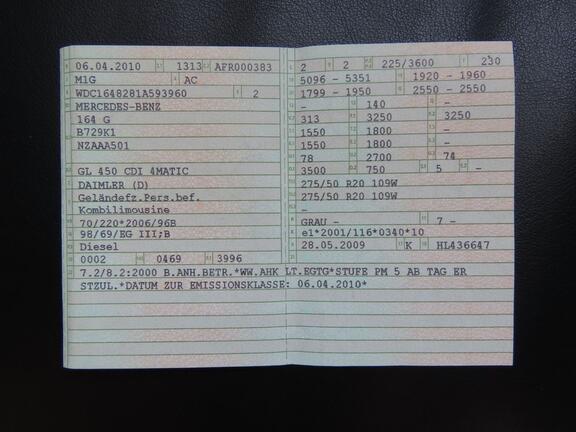 06.04.2010 1313 AFR000383
M1G AC
WDC1648281A593960 2
MERCEDES-BENZ
164 G
B729K1
NZAAA501
GL 450 CDI 4MATIC
DAIMLER (D)
Geländefz.Pers.bef.
Kombilimousine
70/220*2006/96B
98/69/EG III;B
Diesel
0002 0469 3996
2 2 225/3600 230
5096 - 5351 1920 - 1960
1799 - 1950 2550 - 2550
- 140 -
313 3250 3250
1550 1800 -
1550 1800 -
78 2700 74
3500 750 5 -
275/50 R20 109W
275/50 R20 109W
-
GRAU - 7 -
e1*2001/116*0340*10
28.05.2009 K HL436647
7.2/8.2:2000 B.ANH.BETR.*WW.AHK LT.EGTG*STUFE PM 5 AB TAG ER
STZUL.*DATUM ZUR EMISSIONSKLASSE: 06.04.2010*